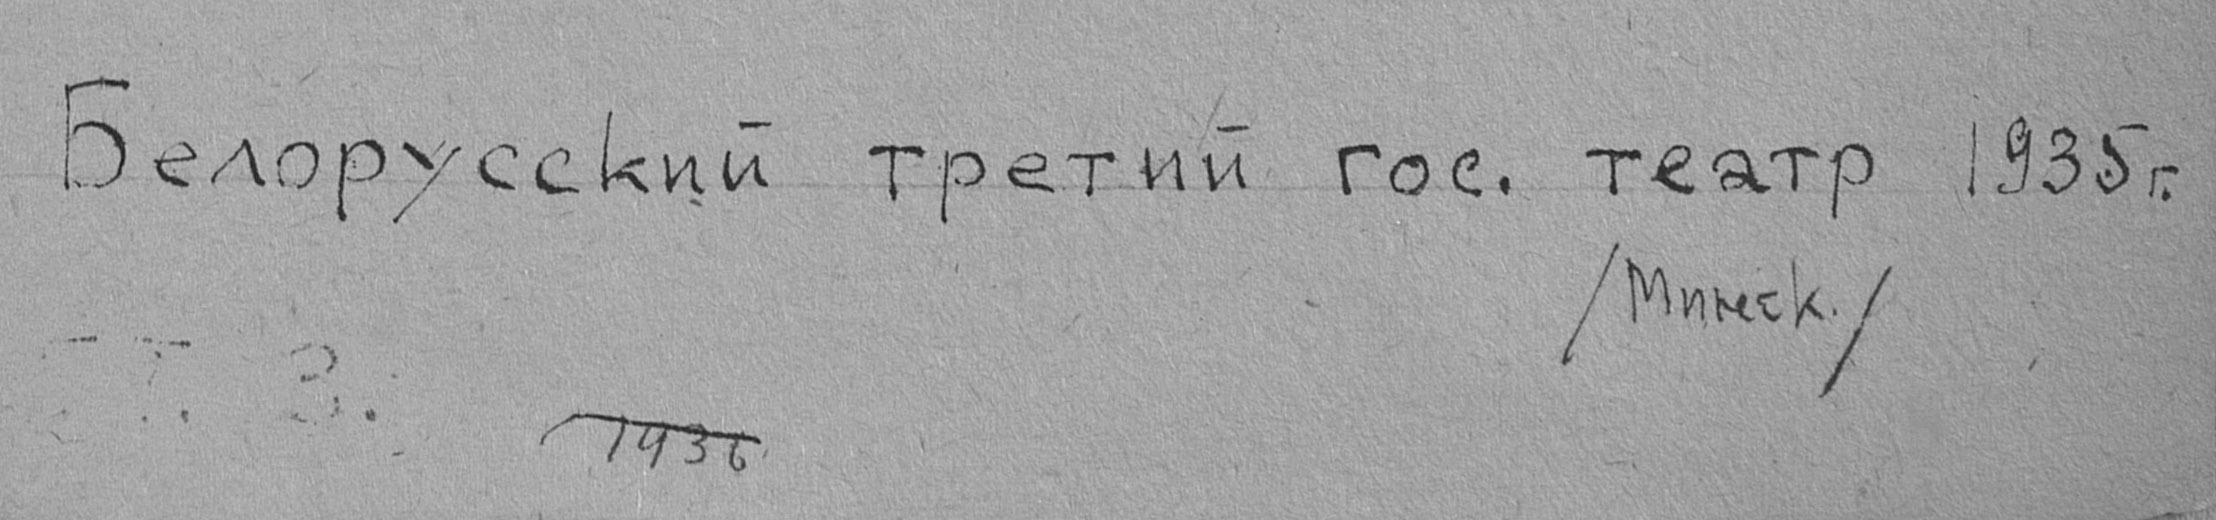 Белорусский третий гос. театр 1935г.
/Минск./
3.
1936